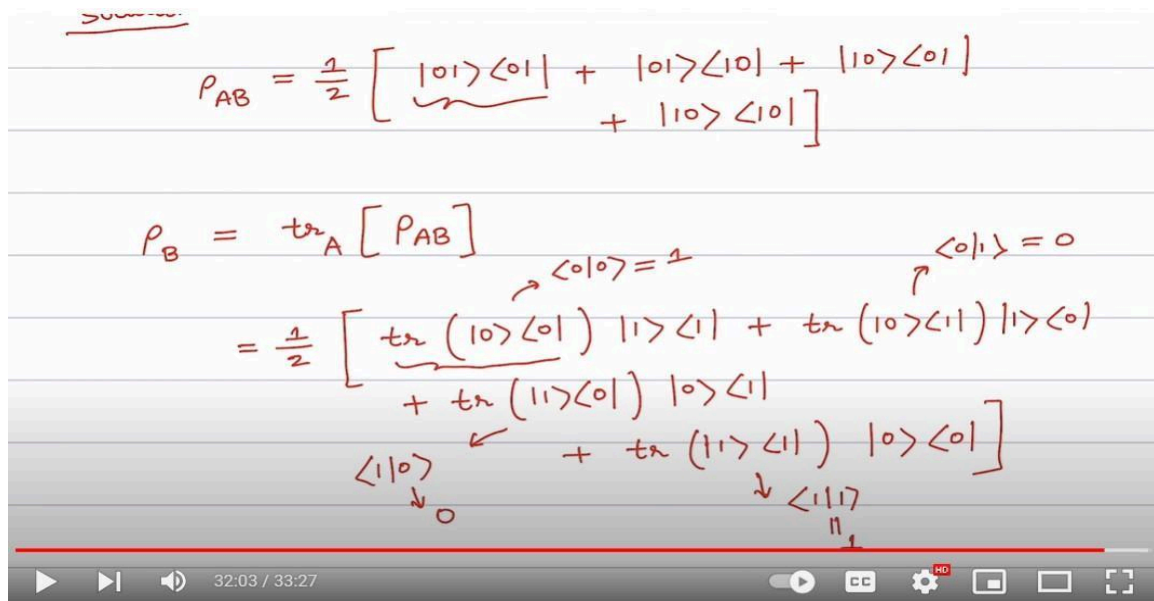 ρ_AB = 1/2 [ |01><01| + |01><10| + |10><01|
+ |10><10| ]
ρ_B = tr_A [ρ_AB]
<0|0> = 1
<0|1> = 0
= 1/2 [ tr (|0><0|) |1><1| + tr (|0><1|) |1><0|
+ tr (|1><0|) |0><1|
+ tr (|1><1|) |0><0| ]
<1|0>
0
<1|1>
=
1
32:03 / 33:27
CC
HD